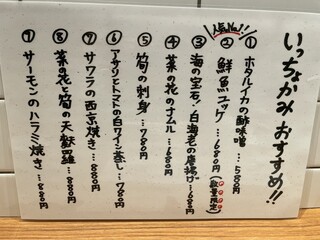 いっちょかみおすすめ!!
① ホタルイカの酢味噌…580円
人気No.1
② 鮮魚ユッケ…680円(数量限定)
③ 海の宝石・白海老の唐揚げ…680円
④ 菜の花のナムル…680円
⑤ 筍の刺身…780円
⑥ アサリとトマトの白ワイン蒸し…780円
⑦ サワラの西京焼き…880円
⑧ 菜の花と筍の天麩羅…880円
⑨ サーモンのハラミ焼き…880円